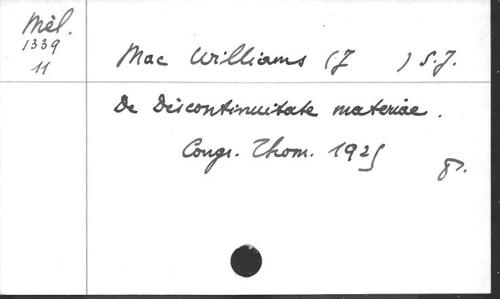 Mél.
1339
11
Mac Williams (J ) S.J.
De Discontinuitate materiae.
Congr. Thom. 1925
8°.